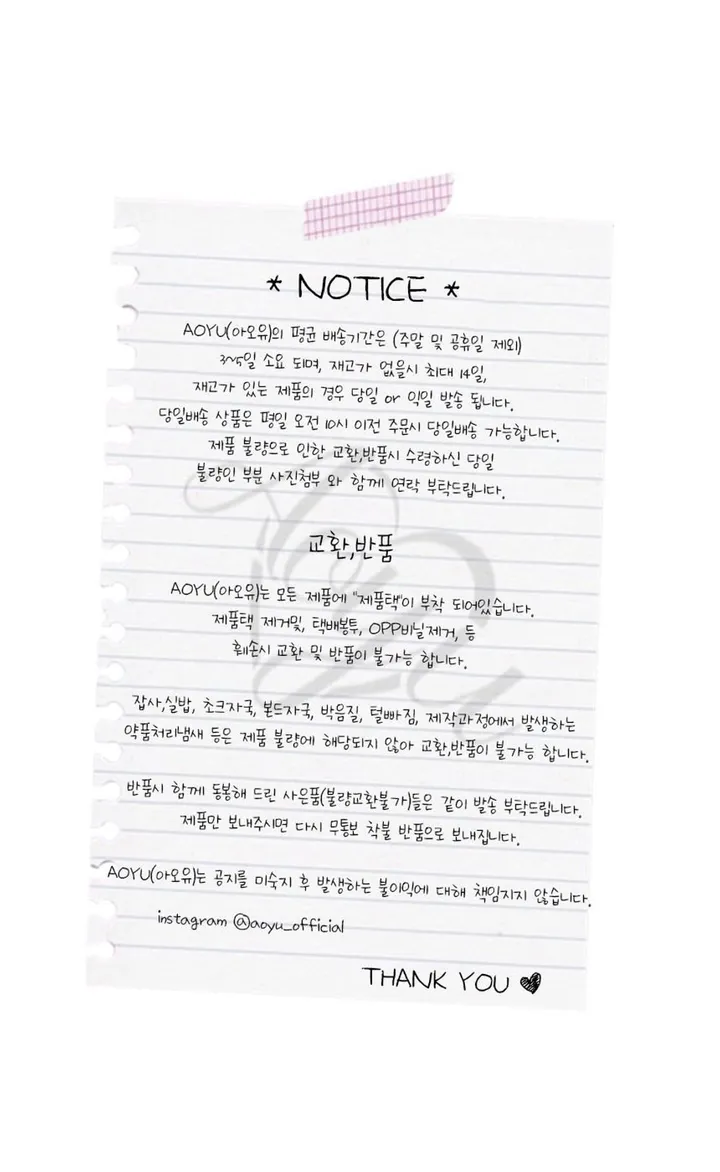 * NOTICE *
AOYU(아오유)의 평균 배송기간은 (주말 및 공휴일 제외)
3~5일 소요 되며, 재고가 없을시 최대 14일,
재고가 있는 제품의 경우 당일 or 익일 발송 됩니다.
당일배송 상품은 평일 오전 10시 이전 주문시 당일배송 가능합니다.
제품 불량으로 인한 교환,반품시 수령하신 당일
불량인 부분 사진첨부 와 함께 연락 부탁드립니다.
교환,반품
AOYU(아오유)는 모든 제품에 "제품택"이 부착 되어있습니다.
제품택 제거및, 택배봉투, OPP비닐제거, 등
훼손시 교환 및 반품이 불가능 합니다.
잡사,실밥, 초크자국, 본드자국, 박음질, 털빠짐, 제작과정에서 발생하는
약품처리냄새 등은 제품 불량에 해당되지 않아 교환,반품이 불가능 합니다.
반품시 함께 동봉해 드린 사은품(불량교환불가)등은 같이 발송 부탁드립니다.
제품만 보내주시면 다시 무통보 착불 반품으로 보내집니다.
AOYU(아오유)는 공지를 미숙지 후 발생하는 불이익에 대해 책임지지 않습니다.
instagram @aoyu_official
THANK YOU ♥
Aoyu